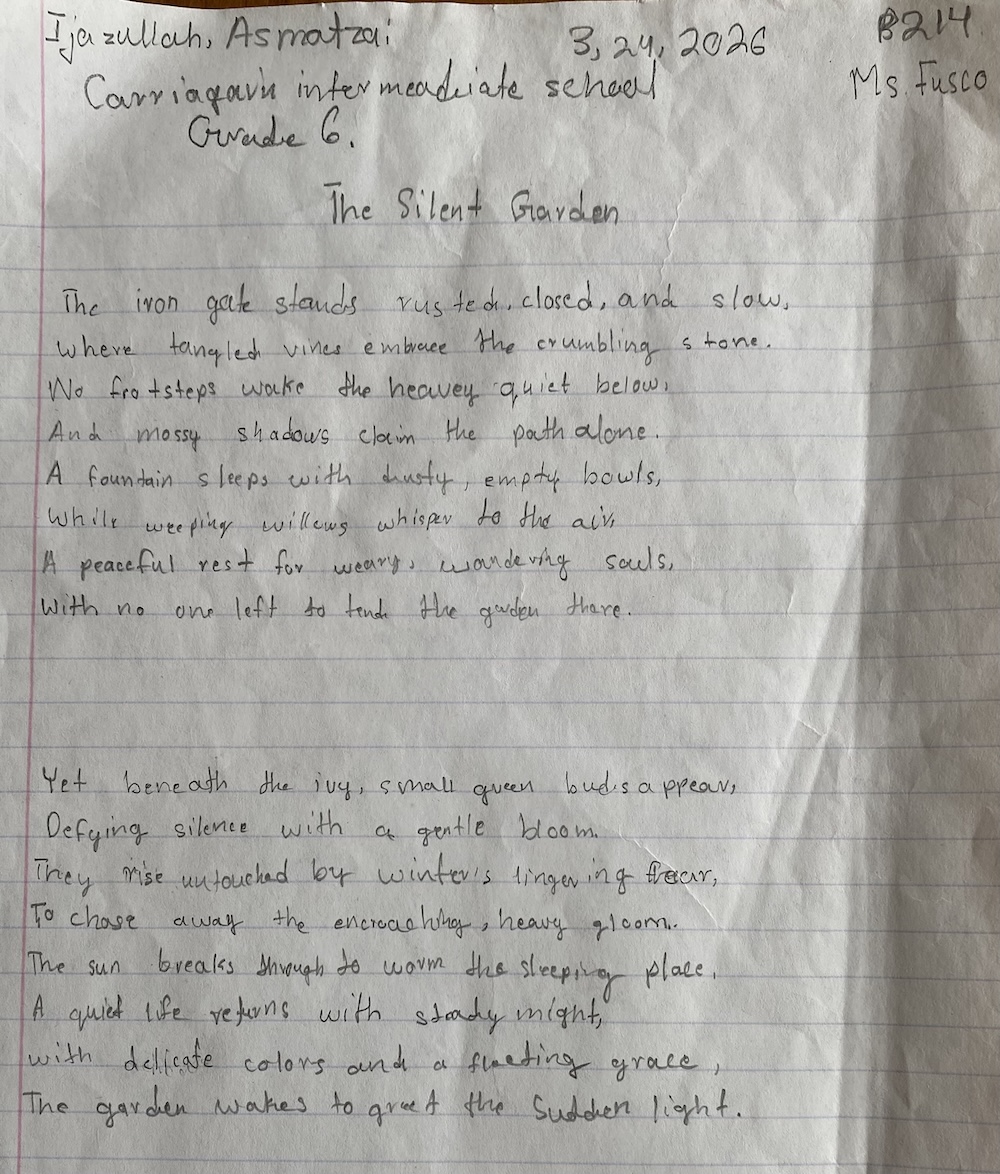 Ijazullah, Asmatzai 3, 24, 2026 B214
Carriagavin intermeadiate school Ms. Fusco
Grade 6.
The Silent Garden
The iron gate stands rusted, closed, and slow,
where tangled vines embrace the crumbling stone.
No frotsteps wake the heavey quiet below,
And mossy shadows claim the path alone.
A fountain sleeps with dusty, empty bowls,
While weeping willows whisper to the air,
A peaceful rest for weary, wandering souls,
With no one left to tend the garden there.
Yet beneath the ivy, small green buds appear,
Defying silence with a gentle bloom.
They rise untouched by winter's lingering frear,
To chase away the encroaching, heavy gloom.
The sun breaks through to warm the sleeping place,
A quiet life returns with steady might,
with delicate colors and a fleeting grace,
The garden wakes to greet the Sudden light.